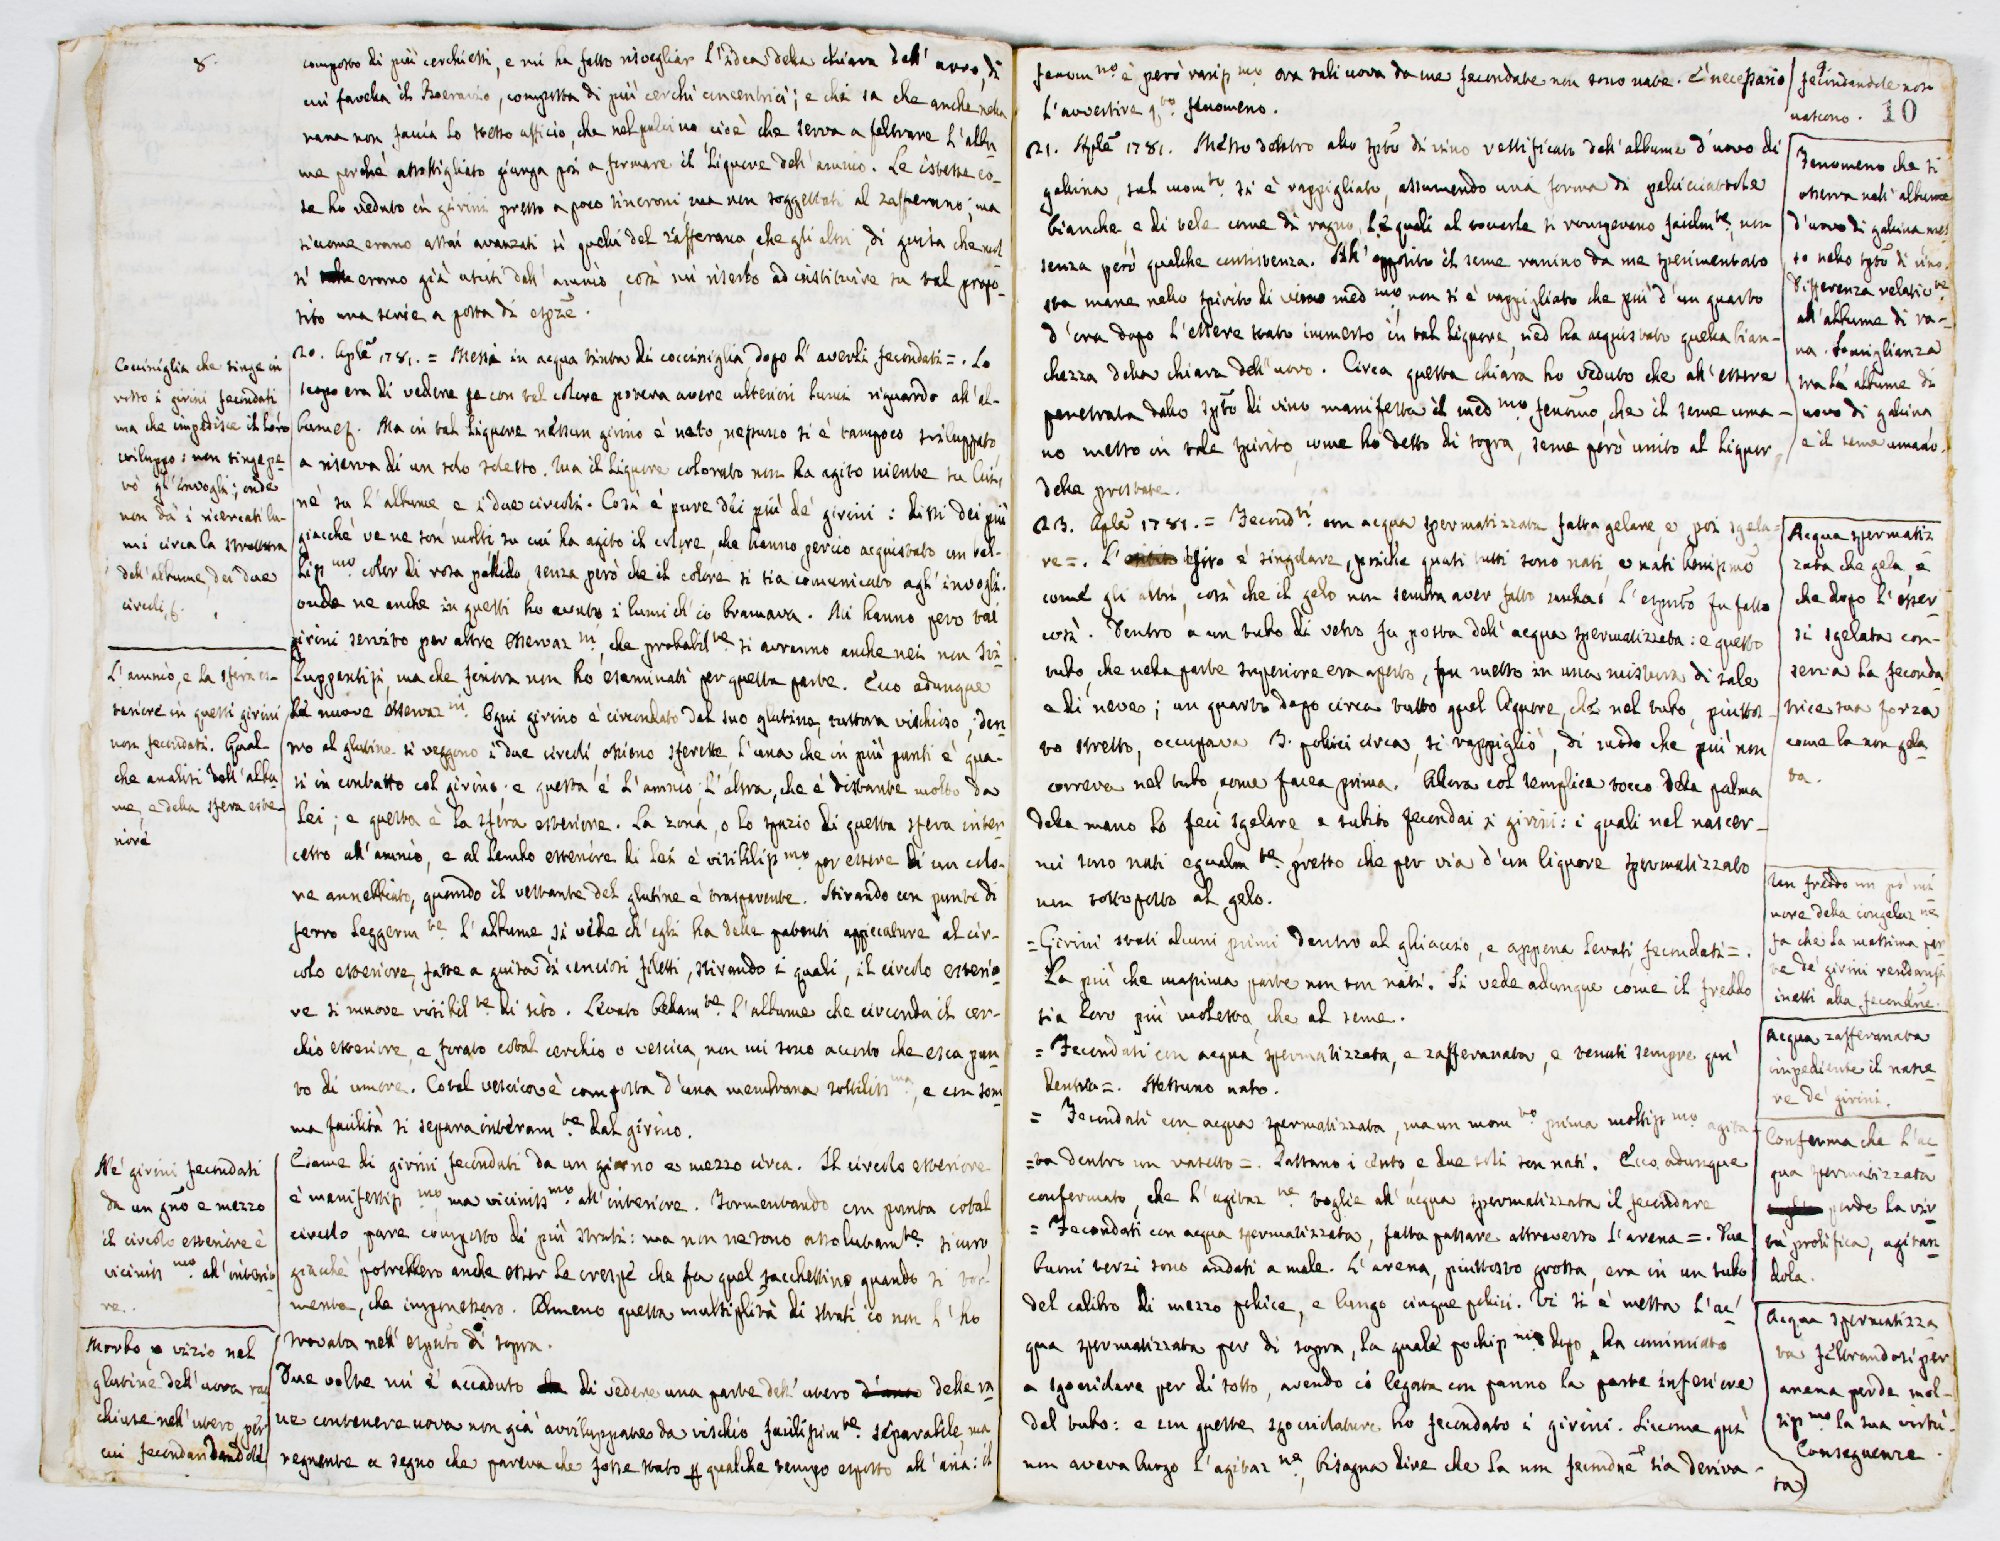 8.
composto di più cerchietti, e mi ha fatto risvegliar l'idea della chiara dell'uovo, di
cui favella il Boeravio, composta di più cerchi concentrici; e chi sa che anche nella
rana non faccia lo stesso ufficio, che nel pulcino cioè che serva a feltrare l'albu-
me perchè assottigliato giunga poi a formare il liquore dell'amnio. Le istesse co-
se ho veduto in girini presso a poco sincroni, ma non soggettati al zafferano; ma
siccome erano assai avanzati sì quelli del zafferano che gli altri, di guisa che
sì erano già usciti dell'amnio, così mi riserbo ad instituire su tal propo-
sito una serie a posta di espze.
Cocciniglia che tinge in
rosso i girini fecondati
ma che impedisce il loro
sviluppo: non tinge pe-
rò gl'invogli; onde
non dà i ricercati lu-
mi circa la struttura
dell'albume, dei due
circoli,
20. Aple 1781. = Messi in acqua tinta di cocciniglia dopo l'averli fecondati =. Lo
scopo era di vedere se con tal colore poteva avere ulteriori lumi riguardo all'al-
bume. Ma in tal liquore nessun girino è nato, nessuno si è tampoco sviluppato,
a riserva di un solo soletto. Ma il liquore colorato non ha agito niente su lui,
nè su l'albume e i due circoli. Così è pure dei più de' girini: dissi dei più
giacchè ve ne son molti su cui ha agito il colore, che hanno perciò acquistato un bel-
lissmo color di rosa pallido, senza però che il colore si sia comunicato agl'invogli.
onde ne anche in questi ho avuto i lumi ch'io bramava. Mi hanno però tai
girini servito per altre osservazni, che probabilte si avranno anche nei non svi-
luppantisi, ma che finora non ho esaminati per questa parte. Ecco adunque
le nuove osservazni. Ogni girino è circondato dal suo glutine, tuttora vischioso; den-
tro al glutine si veggono i due circoli ossieno sferette, l'una che in più punti è qua-
si in contatto col girino: e questa è l'amnio; l'altra, che è distante molto da
lei; e questa è la sfera esteriore. La zona, o lo spazio di questa sfera inter-
cetto all'amnio, e al lembo esteriore di lei è visibilissmo per essere di un colo-
re annebbiato, quando il restante del glutine è trasparente. Stirando con punte di
ferro leggermte l'albume, si vede ch'egli ha delle patenti appiccature al cir-
colo esteriore, fatte a guisa di cenciosi filetti, stirando i quali, il circolo esterio-
re si muove visibilte di sito. Levato bellamte l'albume che circonda il cer-
chio esteriore, e forato cotal cerchio o vescica, non mi sono accorto che esca pun-
to di umore. Cotal vescica è composta d'una membrana sottilissma, e con som-
ma facilità si separa interamte dal girino.
L'amnio, e la sfera es-
teriore in questi girini
non fecondati. Qual-
che analisi dell'albu-
me, e della sfera este-
riore
Ne' girini fecondati
da un gno e mezzo
il circolo esteriore è
vicinissmo all'interio-
re.
Esame di girini fecondati da un giorno e mezzo circa. Il circolo esteriore
è manifestissmo, ma vicinissmo all'interiore. Tormentando con punta cotal
circolo, pare composto di più strati: ma non ne sono assolutamte sicuro
giacchè potrebbero anche esser le crespe che fa quel sacchettino, quando si tor-
menta, che imponessero. Almeno questa multiplicità di strati io non l'ho
trovata nell'esputo di sopra.
Morbo, o vizio nel
glutine dell'uova rac-
chiuse nell'utero, per
cui fecondandole
Due volte mi è accaduto di vedere una parte dell'utero delle ra-
ne contenere uova non già avviluppate da vischio facilissimte separabile, ma
regnente a segno che pareva che fosse stato qualche tempo esposto all'aria: il
fenomno è però rarissmo ora tali uova da me fecondate non sono nate. È necessario
l'avvertire qto fenomeno.
9.
fecondandole non
nascono. 10
21. Aple 1781. Messo dentro allo spto di vino rettificato dell'albume d'uovo di
gallina, sul momto si è rappigliato, assumendo una forma di pellicciattole
bianche e di tele come di ragno, le quali al toccarle si rompevano facilmte, non
senza però qualche consistenza. All'opposito il seme ranino da me sperimentato
sta mane nello spirito di vino medmo non si è rappigliato che più d'un quarto
d'ora dopo l'essere stato immerso in tal liquore, ned ha acquistato quella bian-
chezza della chiara dell'uovo. Circa questa chiara ho veduto che all'essere
penetrata dallo spto di vino manifesta il medmo fenomno, che il seme uma-
no messo in tale spirito, come ho detto di sopra, seme però unito al liquor
delle prostate.
Fenomeno che si
osserva nell'albume
d'uovo di gallina mes-
so nello spto di vino.
Differenza relativte
all'albume di ra-
na. Somiglianza
tra l'albume di
uovo di gallina
e il seme umano.
23. Aple 1781. = Fecondti con acqua spermatizzata fatta gelare, e poi sgela-
re =. L'esito è singolare, poichè quasi tutti sono nati, e nati benissmo
come gli altri, così che il gelo non sembra aver fatto nulla. L'esputo fu fatto
così. Dentro a un tubo di vetro fu posta dell'acqua spermatizzata: e questo
tubo, che nella parte superiore era aperto, fu messo in una mistura di sale
e di neve; un quarto dopo circa tutto quel liquore, che nel tubo, piuttos-
to stretto, occupava 3. pollici circa, si rappigliò, di modo che più non
correva nel tubo, come facea prima. Allora col semplice tocco della palma
della mano lo feci sgelare, e subito fecondai i girini: i quali nel nascer-
mi sono nati egualmte presto che per via d'un liquore spermatizzato
non sottoposto al gelo.
Acqua spermatiz-
zata che gela, e
che dopo l'esser-
si sgelata con-
serva la feconda-
trice sua forza
come la non gela-
ta.
= Girini stati alcuni primi dentro al ghiaccio, e appena levati fecondati =.
La più che massima parte non son nati. Si vede adunque come il freddo
sia loro più molesto, che al seme.
Un freddo un po' mi-
nore della congelazne
fa che la massima par-
te de' girini rendansi
inetti alla fecondne.
= Fecondati con acqua spermatizzata, e zafferanata, e tenuti sempre qui
dentro =. Nessuno nato.
Acqua zafferanata
impediente il nasce-
re de' girini.
= Fecondati con acqua spermatizzata, ma un momto prima moltissmo agita-
ta dentro un vasetto =. Passano i cento e due soli son nati. Ecco adunque
confermato, che l'agitazne toglie all'acqua spermatizzata il fecondare
Conferma che l'ac-
qua spermatizzata
perde la vir-
tù prolifica, agitan-
dola.
= Fecondati con acqua spermatizzata, fatta passare attraverso l'arena =. Due
buoni terzi sono andati a male. L'arena, piuttosto grossa, era in un tubo
del calibro di mezzo pollice, e lungo cinque pollici. Vi si è messa l'ac-
qua spermatizzata per di sopra, la quale pochissmi dopo ha cominciato
a sgocciolare per di sotto, avendo io legata con panno la parte inferiore
del tubo: e con queste sgocciolature ho fecondato i girini. Siccome qui
non aveva luogo l'agitazne, bisogna dire che la non fecondne sia deriva-
ta
Acqua spermatizza-
ta feltrandosi per
arena perde mol-
tissmo la sua virtù.
Conseguenze.